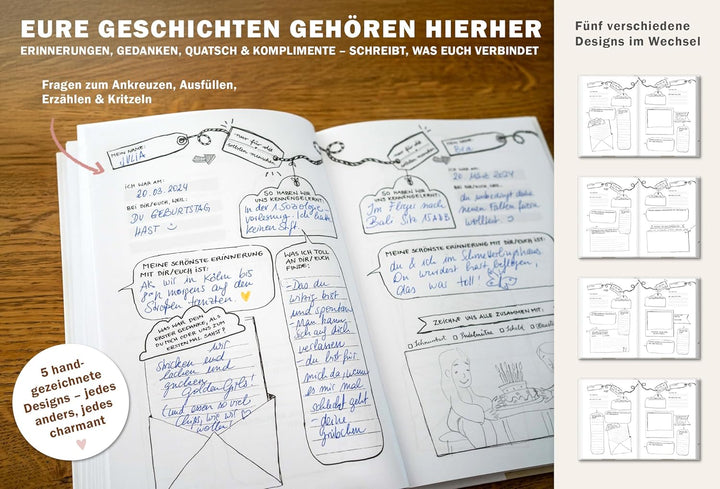 EURE GESCHICHTEN GEHÖREN HIERHER
ERINNERUNGEN, GEDANKEN, QUATSCH & KOMPLIMENTE – SCHREIBT, WAS EUCH VERBINDET
Fragen zum Ankreuzen, Ausfüllen,
Erzählen & Kritzeln
MEIN NAME:
JULIA
nur für die
ICH WAR AM:
20.03.2024
BEI DIR/EUCH, WEIL:
DU GEBURTSTAG
HAST
SO HABEN WIR
UNS KENNENGELERNT:
In der 1. Soziologie-
vorlesung. Ich hatte
keinen Stift.
MEINE SCHÖNSTE ERINNERUNG
MIT DIR/EUCH IST:
Als wir in Köln bis
morgens auf den
Straßen tanzten.
WAS WAR DEIN
ERSTER GEDANKE, ALS
DU DICH ODER UNS ZUM
ERSTEN MAL SAHST?
Wir
stricken und
lachen und
gucken
Golden Girls!
(und essen so viel
Chips, wie wir
wollen!)
WAS ICH TOLL
AN DIR/EUCH
FINDE:
- Das du
witzig bist
und spontan
Man kann
sich auf dich
verlassen
- du bist für
mich da, wenn
es mir mal
schlecht geht
- deine
Grübchen
MEIN NAME:
Bea
nur für die
ICH WAR AM:
20. März 2024
BEI DIR/EUCH, WEIL:
du unbedingt deine
neuen Falten feiern
wolltest
SO HABEN WIR
UNS KENNENGELERNT:
Im Flieger nach
Bali Sitz 15A&B
MEINE SCHÖNSTE ERINNERUNG MIT DIR/EUCH IST:
du & ich im Schmetterlingshaus.
Du wurdest fast beflogen,
das was toll!
ZEICHNE UNS ALLE ZUSAMMEN MIT:
Schnurrbart
Pudelmütze
Schild
5 hand-
gezeichnete
Designs – jedes
anders, jedes
charmant
Fünf verschiedene
Designs im Wechsel